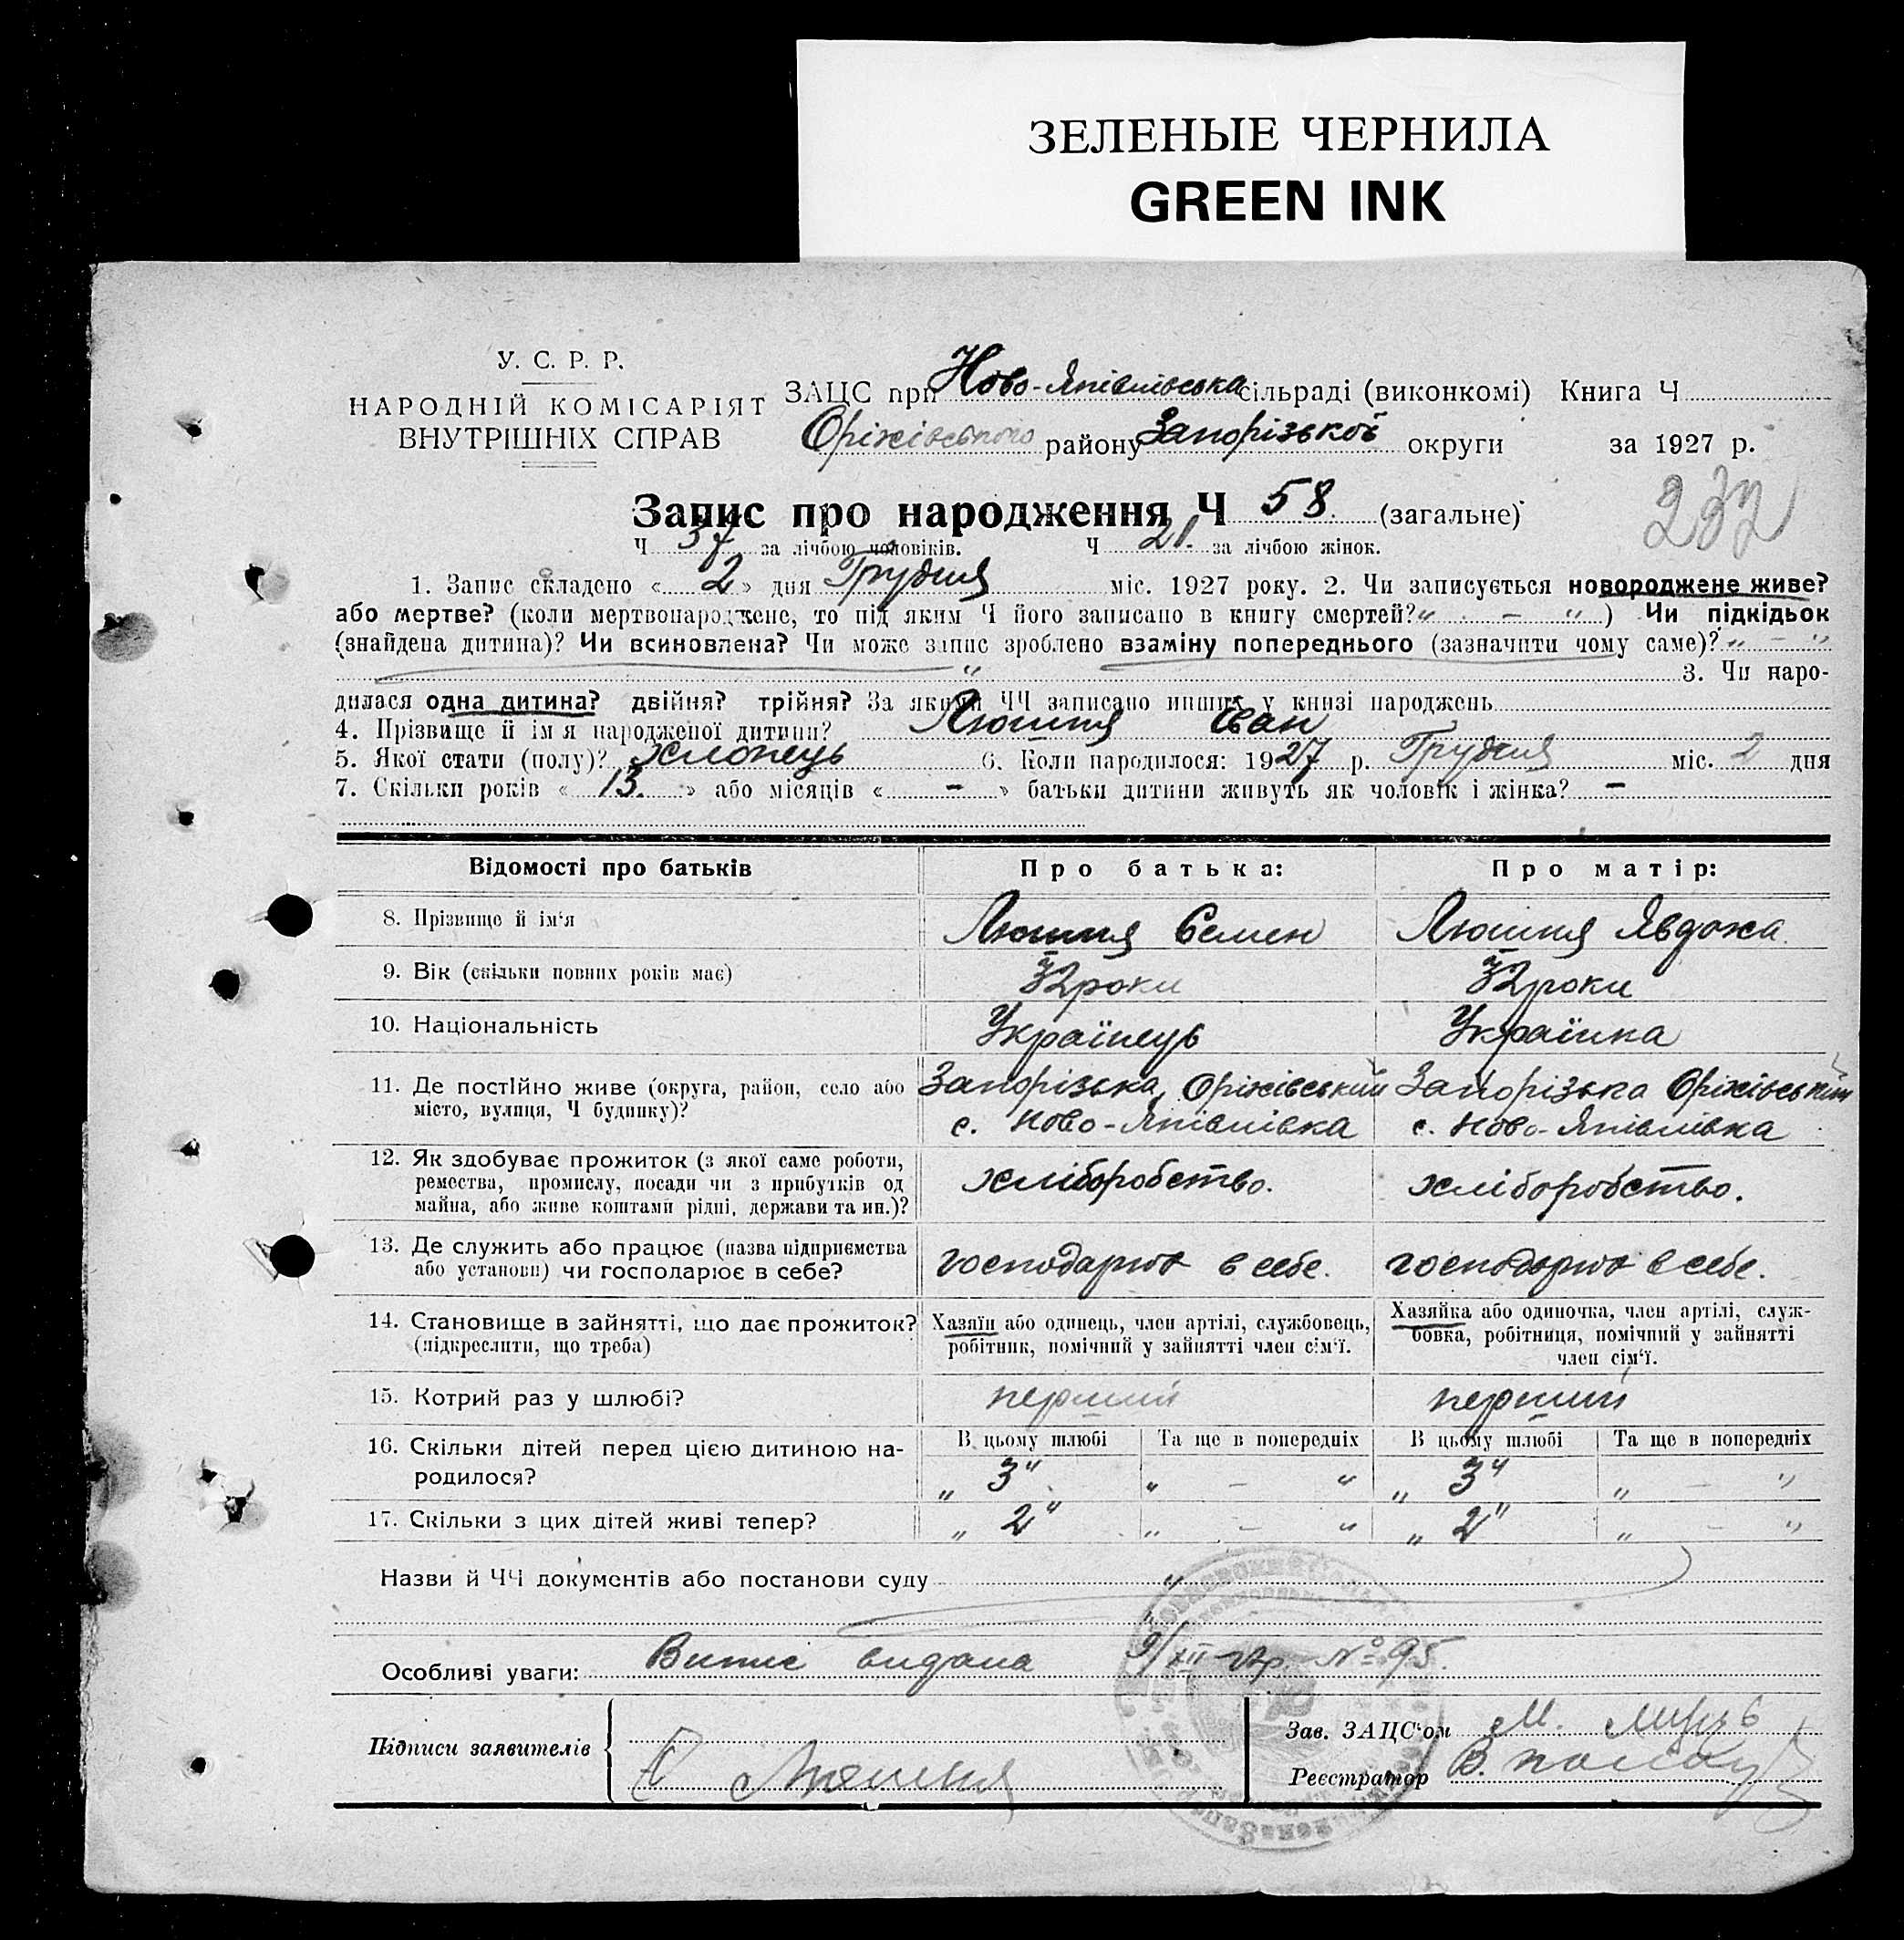 ЗЕЛЕНЫЕ ЧЕРНИЛА
GREEN INK
У. С. Р. Р.
НАРОДНІЙ КОМІСАРІЯТ
ВНУТРІШНІХ СПРАВ
ЗАЦС при Ново-Япівлівська сільраді (виконкомі) Книга Ч
Оріхівського району Запорізької округи за 1927 р.
Запис про народження Ч 58 (загальне)
232
Ч 37 за лічбою чоловіків. Ч 21. за лічбою жінок.
1. Запис складено « 2 » дня Грудня міс. 1927 року. 2. Чи записується новороджене живе?
або мертве? (коли мертвонароджене, то під яким Ч його записано в книгу смертей? „ – “ ) Чи підкідьок
(знайдена дитина)? Чи всиновлена? Чи може запис зроблено взаміну попереднього (зазначити чому саме)? „ – “
„ 3. Чи наро-
дилася одна дитина? двійня? трійня? За якими ЧЧ записано инших у книзі народжень
4. Прізвище й ім'я народженої дитини? Люшня Іван
5. Якої стати (полу)? хлопець 6. Коли народилося: 1927 р. Грудня міс. 2 дня
7. Скільки років « 13. » або місяців « – » батьки дитини живуть як чоловік і жінка? –
Відомості про батьків Про батька: Про матір:
8. Прізвище й ім'я Люшня Семен Люшня Явдоха
9. Вік (скільки повних років має) 32 роки 32 роки
10. Національність Українець Українка
11. Де постійно живе (округа, район, село або Запорізька, Оріхівський Запорізька Оріхівський
місто, вулиця, Ч будинку)? с. Ново-Япівлівка с. Ново-Япівлівка
12. Як здобуває прожиток (з якої саме роботи,
ремества, промислу, посади чи з прибутків од хліборобство. хліборобство.
майна, або живе коштами рідні, держави та ин.)?
13. Де служить або працює (назва підприємства
або установи) чи господарює в себе? господарює в себе. господарює в себе.
14. Становище в зайнятті, що дає прожиток? Хазяїн або одинець, член артілі, службовець, Хазяйка або одиночка, член артілі, служ-
(підкреслити, що треба) робітник, помічний у зайнятті член сім'ї. бовка, робітниця, помічний у зайнятті
член сім'ї.
15. Котрий раз у шлюбі? перший перший
16. Скільки дітей перед цією дитиною на- В цьому шлюбі Та ще в попередніх В цьому шлюбі Та ще в попередніх
родилося? „ 3 “ „ – “ „ 3 “ „ – “
17. Скільки з цих дітей живі тепер? „ 2 “ „ – “ „ 2 “ „ – “
Назви й ЧЧ документів або постанови суду „
Особливі уваги: Випис видана 9/XII 27р. № 95.
Підписи заявителів
Люшня
Зав. ЗАЦС'ом М.
Реєстратор В.